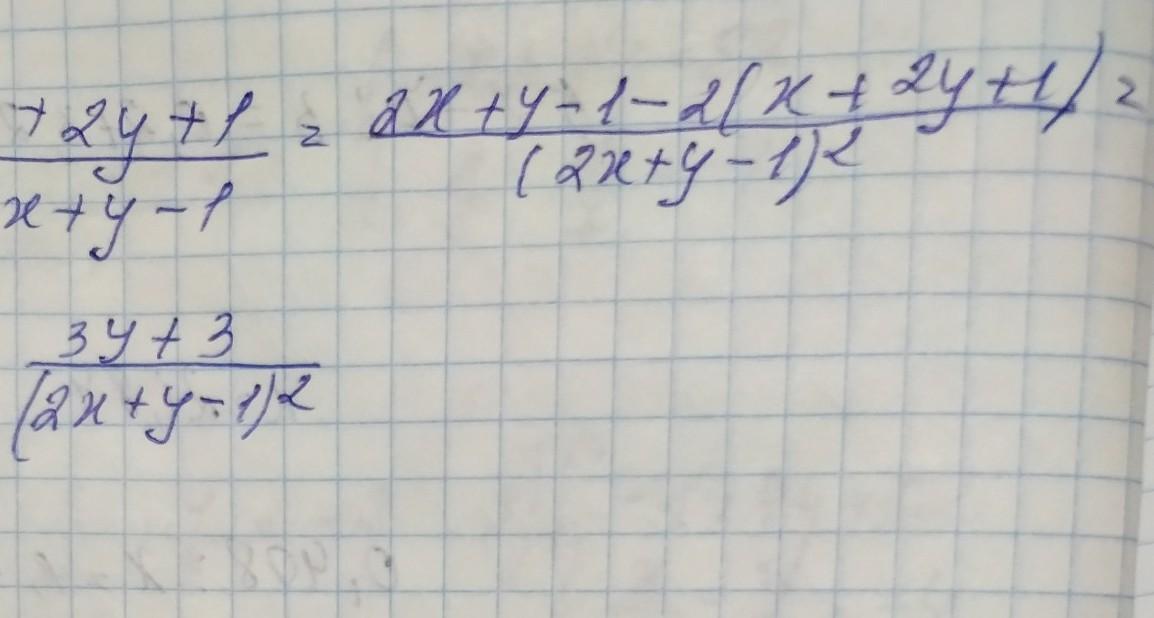 + 2y + 1 / x + y - 1 = 2x + y - 1 - 2(x + 2y + 1) / (2x + y - 1)^2 =
3y + 3 / (2x + y - 1)^2